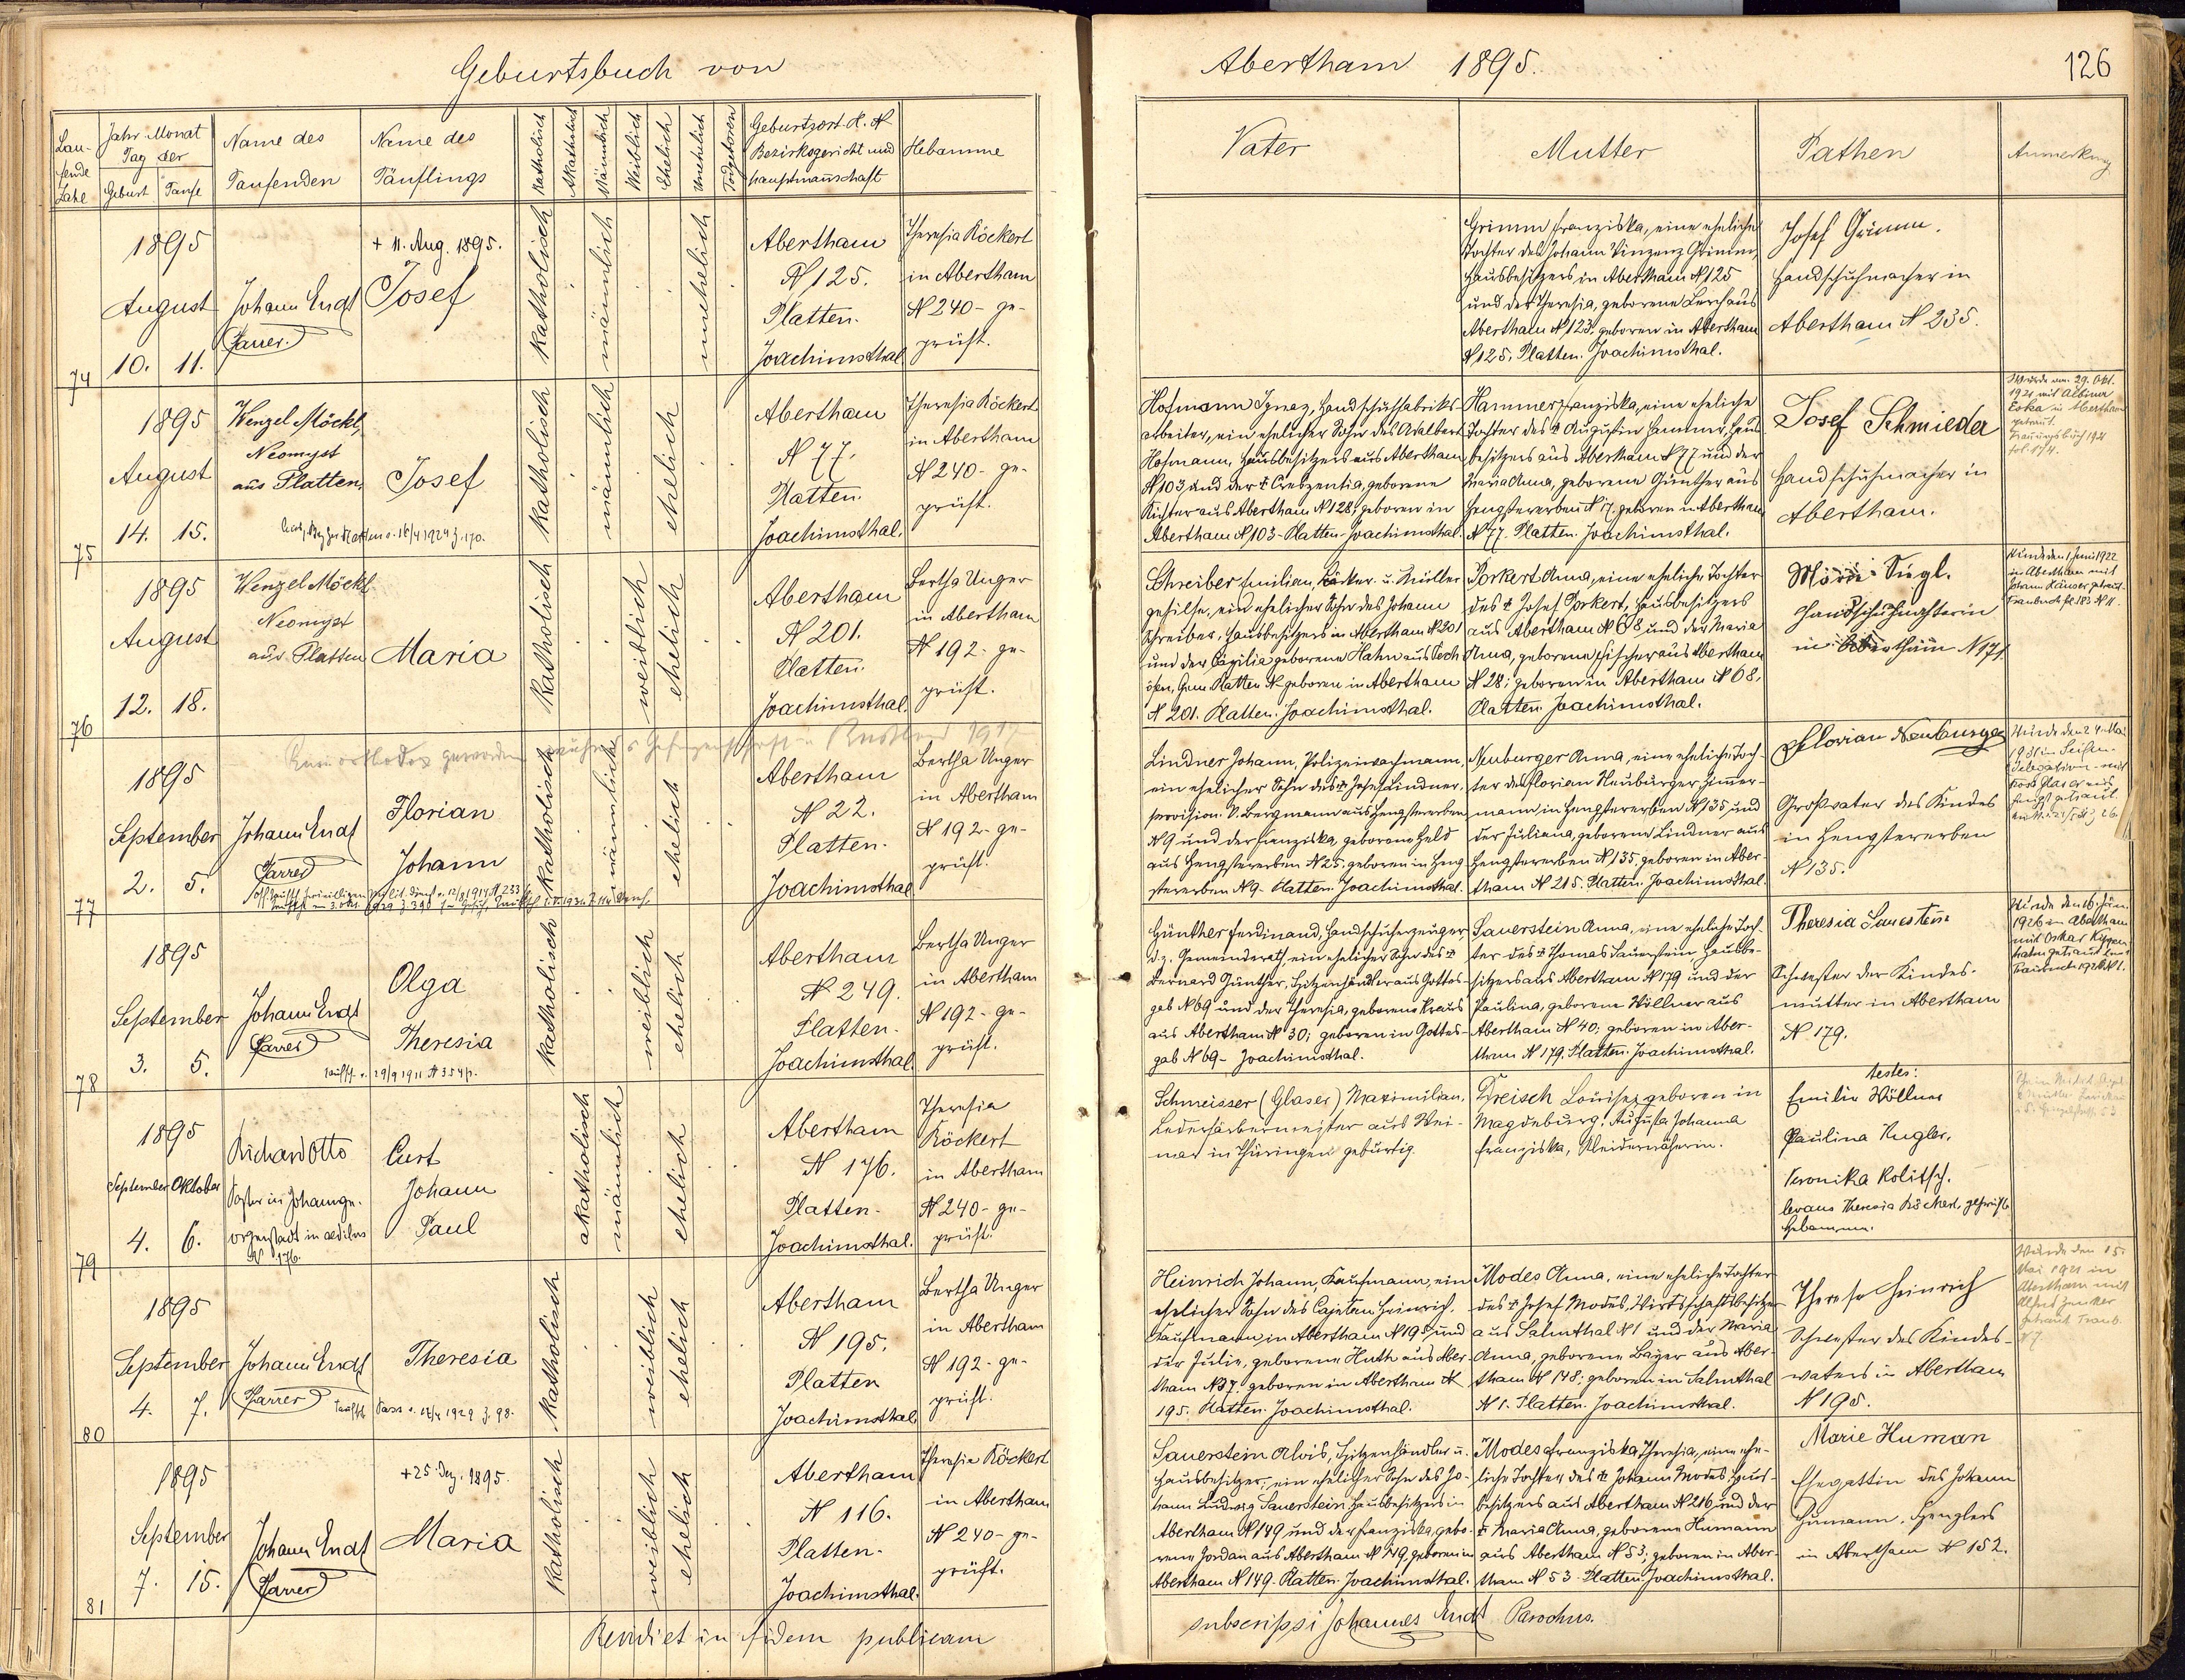 Geburtsbuch von
Abertham 1895.
126
Laufende Zahl
Jahr Monat
Tag der
Geburt Taufe
Name des
Taufenden
Name des
Täuflings
Katholisch
Akatholisch
Männlich
Weiblich
Ehelich
Unehelich
Todgeboren
Geburtsort H. N
Bezirksgericht und
Hauptmannschaft
Hebamme
Vater
Mutter
Pathen
Anmerkung
74
1895
August
10. 11.
Johann Endt
Pfarrer
+ 11. Aug. 1895.
Josef
katholisch
männlich
unehelich
Abertham
N 125.
Platten.
Joachimsthal
Theresia Röckert
in Abertham
N 240 - ge-
prüft.
Grimm Franziska, eine eheliche
Tochter des Johann Vinzenz Grimm,
Hausbesitzers in Abertham N 125
und der Theresia, geborene Lerch aus
Abertham N 123, geboren in Abertham
N 125. Platten. Joachimsthal.
Josef Grimm.
Handschuhmacher in
Abertham N 235.
75
1895
August
14. 15.
Wenzel Möckl,
Neomyst
aus Platten.
Josef
katholisch
männlich
ehelich
Abertham
N 77.
Platten.
Joachimsthal.
Theresia Röckert
in Abertham
N 240 - ge-
prüft.
Hofmann Ignaz, Handschuhfabriks-
arbeiter, ein ehelicher Sohn des Adalbert
Hofmann, Hausbesitzers aus Abertham
N 103 und der + Creszentia, geborene
Richter aus Abertham N 128, geboren in
Abertham N 103 - Platten - Joachimsthal.
Hammer Franziska, eine eheliche
Tochter des + Augustin Hammer, Haus
besitzers aus Abertham N 77 und der
Maria Anna, geborene Günther aus
Hengstererben N 17, geboren in Abertham
N 77. Platten. Joachimsthal.
Josef Schmieder
Handschuhmacher in
Abertham.
Wurde am 29. Okt.
1921 mit Albina
in Abertham
getraut.
Trauungsbuch 1921
fol. 174.
76
1895
August
12. 18.
Wenzel Möckl
Neomyst
aus Platten
Maria
katholisch
weiblich
ehelich
Abertham
N 201.
Platten.
Joachimsthal
Bertha Unger
in Abertham
N 192 - ge-
prüft.
Schreiber Emilian, Bäcker u. Müller
gehilfe, ein ehelicher Sohn des Johann
Schreiber, Hausbesitzers in Abertham N 201
und der Cäzilia geborene Hahn aus Pech
öfen, Gem. Platten N - geboren in Abertham
N 201. Platten. Joachimsthal.
Porkert Anna, eine eheliche Tochter
des + Josef Porkert, Hausbesitzers
aus Abertham N 68 und der Maria
Anna, geborene Fischer aus Abertham
N 28; geboren in Abertham N 68.
Platten. Joachimsthal.
Siegl.
Handschuhnäherin
in Abertham N 171.
Wurde den 1 Juni 1922
in Abertham mit
Johann getraut.
fol. 183 N 11.
77
1895
September
2. 5.
Johann Endt
Pfarrer
Florian
Johann
katholisch
männlich
ehelich
Abertham
N 22.
Platten.
Joachimsthal
Bertha Unger
in Abertham
N 192 - ge-
prüft.
Lindner Johann, Polizeiwachmann,
ein ehelicher Sohn des + Josef Lindner,
provision. k. Bergmann aus Hengstererben
N 9 und der Franziska, geborene Held
aus Hengstererben N 25; geboren in Heng-
stererben N 9 - Platten. Joachimsthal.
Neuburger Anna, eine eheliche Toch-
ter des Florian Neuburger, Zimer-
mann in Hengstererben N 135 und
der Juliana, geborene Lindner aus
Hengstererben N 135, geboren in Aber-
tham N 215. Platten. Joachimsthal.
Florian Neuburger
Großvater des Kindes
in Hengstererben
N 135.
78
1895
September
3. 5.
Johann Endt
Pfarrer
Olga
Theresia
katholisch
weiblich
ehelich
Abertham
N 249.
Platten.
Joachimsthal
Bertha Unger
in Abertham
N 192 - ge-
prüft.
Günther Ferdinand, Handschuherzeuger,
d. z. Gemeinderath, ein ehelicher Sohn des +
Bernard Günther, Spitzenhändler aus Gottes-
gab N 69 und der Theresia, geborene Kraus
aus Abertham N 30; geboren in Gottes-
gab N 69 - Joachimsthal.
Sauerstein Anna, eine eheliche Toch-
ter des + Thomas Sauerstein Hausbe-
sitzers aus Abertham N 179 und der
Paulina, geborene Wöllner aus
Abertham N 40; geboren in Aber-
tham N 179. Platten. Joachimsthal.
Theresia Sauerstein
Schwester der Kindes-
mutter in Abertham
N 179.
79
1895
September Oktober
4. 6.
Richard Otto
Pastor in Johannge-
orgenstadt in aedibus
N 176.
Curt
Johann
Paul
akatholisch
männlich
ehelich
Abertham
N 176.
Platten.
Joachimsthal.
Theresia
Röckert
in Abertham
N 240 - ge-
prüft.
Schmeisser (Glaser) Maximilian,
Lederfärbermeister aus Wei-
mar in Thüringen gebürtig.
Dreisch Louise, geboren in
Magdeburg, Augusta Johanna
Franziska, Kleidernäherin.
testes:
Emilie Wöllner
Paulina Kugler,
Veronika Kolitsch.
levans Theresia Röckert, geprüfte
Hebamme.
80
1895
September
4. 7.
Johann Endt
Pfarrer
Theresia
katholisch
weiblich
ehelich
Abertham
N 195.
Platten
Joachimsthal
Bertha Unger
in Abertham
N 192 - ge-
prüft.
Heinrich Johann, Kaufmann, ein
ehelicher Sohn des Cajetan Heinrich,
Kaufmann in Abertham N 195 und
der Julie, geborene Huth aus Aber-
tham N 37. geboren in Abertham N
195. Platten. Joachimsthal.
Modes Anna, eine eheliche Tochter
des + Josef Modes, Wirtschaftsbesitzer
aus Salmthal N 1 und der Maria
Anna, geborene Bayer aus Aber-
tham N 148; geboren in Salmthal
N 1. Platten. Joachimsthal.
Therese Heinrich
Schwester des Kindes-
vaters in Abertham
N 195.
Wurde den 15.
Mai 1921 in
Abertham mit
Alfred
getraut
81
1895
September
7. 15.
Johann Endt
Pfarrer
+ 25. Dez. 1895.
Maria
katholisch
weiblich
ehelich
Abertham
N 116.
Platten.
Joachimsthal.
Theresia Röckert
in Abertham
N 240 - ge-
prüft.
Sauerstein Alois, Spitzenhändler u.
Hausbesitzer, ein ehelicher Sohn des Jo-
hann Ludwig Sauerstein, Hausbesitzers in
Abertham N 149 und der Franziska, gebo-
rene Jordan aus Abertham N 149, geboren in
Abertham N 149. Platten. Joachimsthal.
Modes Franziska Theresia, eine ehe-
liche Tochter des + Johann Modes, Haus-
besitzers aus Abertham N 216 und der
+ Maria Anna, geborene Humann
aus Abertham N 53; geboren in Aber-
tham N 53 - Platten. Joachimsthal.
Marie Human
Ehegattin des Johann
Humann, Spenglers
in Abertham N 152.
in fidem publicam
subscripsi Johannes Endt Parochus.